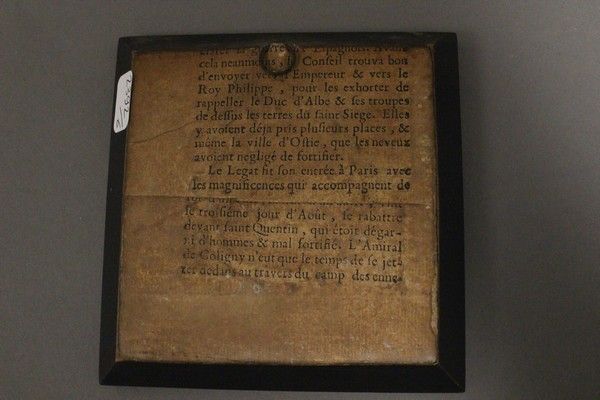 cela neanmoins, le Conseil trouva bon
d'envoyer vers l'Empereur & vers le
Roy Philippe, pour les exhorter de
rappeller le Duc d'Albe & ses troupes
de dessus les terres du saint Siege. Elles
y avoient déja pris plusieurs places, &
même la ville d'Ostie, que les neveux
avoient negligé de fortifier.
Le Legat fit son entrée à Paris avec
les magnificences qui accompagnent de
le troisiéme jour d'Août, se rabattre
devant saint Quentin, qui étoit dégar-
ni d'hommes & mal fortifié. L'Amiral
de Coligny n'eut que le temps de se jet-
ter dedans au travers du camp des enne-